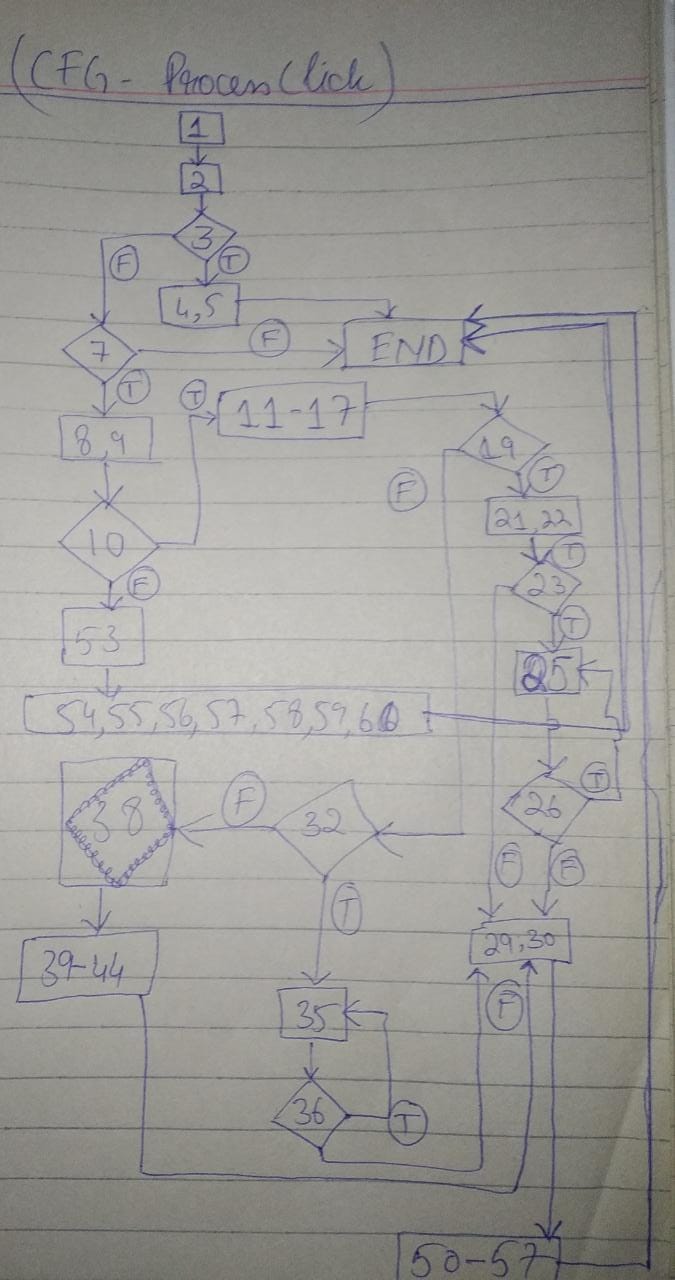 (CFG - Process Click)
1
2
3
F
T
4,5
7
F
END
T
T
11-17
8,9
19
F
T
21,22
10
T
F
23
T
53
25
54,55,56,57,58,59,60
T
26
38
F
32
F
F
T
29,30
39-44
F
35
36
T
50-57